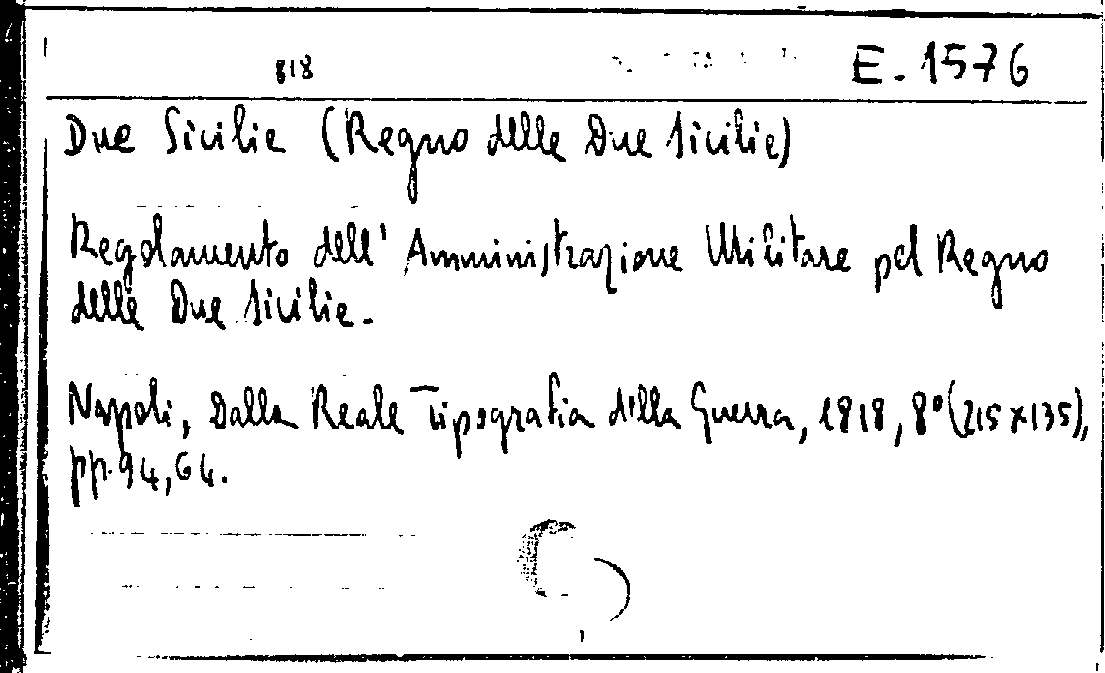 818 E. 1576
Due Sicilie (Regno delle Due Sicilie)
Regolamento dell' Amministrazione Militare pel Regno
delle Due Sicilie.
Napoli, Dalla Reale Tipografia della Guerra, 1818, 8° (215x135),
pp. 94, 64.